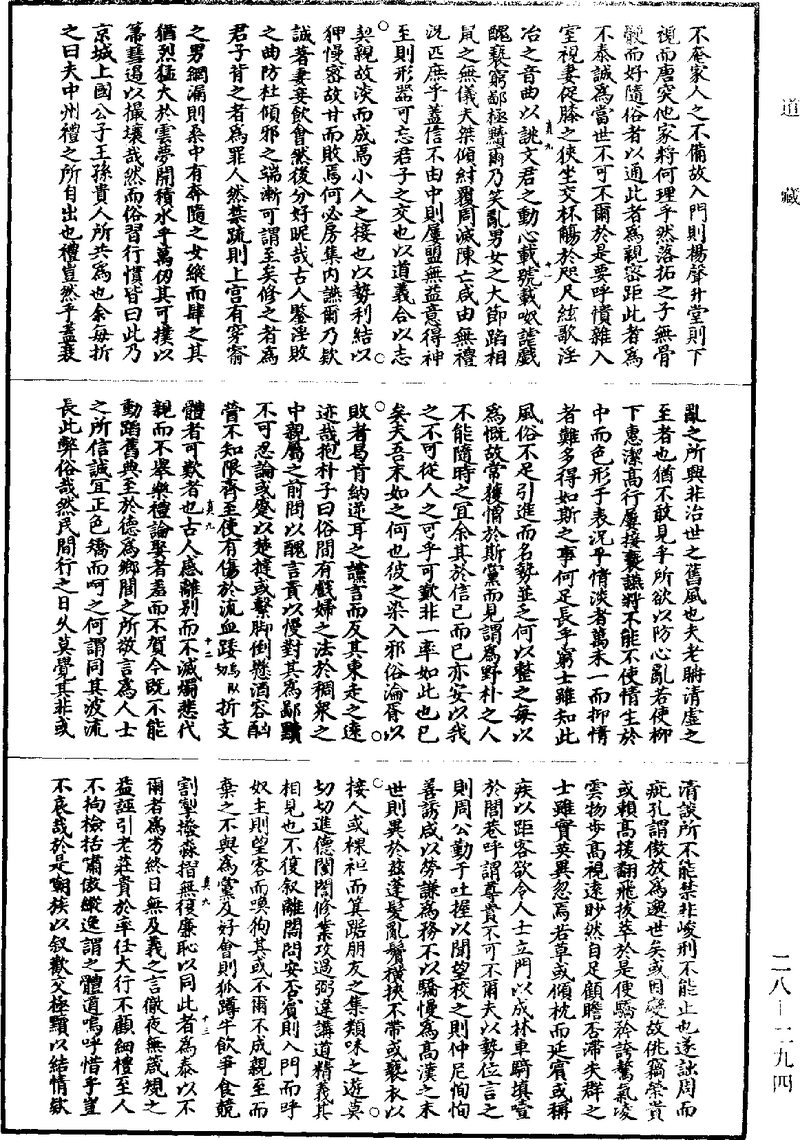 道藏
不庵家人之不備故入門則揚聲升堂則下
視而唐突他家將何理乎然落拓之子無骨
骾而好隨俗者以通此者為親密距此者為
不泰誠為當世不可不爾於是要呼憒雜入
室視妻促膝之狹坐交杯觴於咫尺絃歌淫
冶之音曲以誂文君之動心載號載呶謔戲
醜褻窮鄙極黷爾乃笑亂男女之大節蹈相
鼠之無儀夫桀傾紂覆周滅陳亡咸由無禮
況匹庶乎蓋信不由中則屢盟無益意得神
至則形器可忘君子之交也以道義合以志
契親故淡而成焉小人之接也以勢利結以
狎慢密故甘而敗焉何必房集內讌爾乃款
誠著妻妾飲會然後分好昵哉古人鑒淫敗
之曲防杜傾邪之端漸可謂至矣修之者為
君子背之者為罪人然禁疏則上宮有穿窬
之男網漏則桑中有奔隨之女縱而肆之其
猶烈猛火於雲夢開積水乎萬仞其可撲以
箒篲遏以撮壤哉然而俗習行慣皆曰此乃
京城上國公子王孫貴人所共為也余每折
之曰夫中州禮之所自出也禮豈然乎蓋衰
亂之所興非治世之舊風也夫老聃清虛之
至者也猶不敢見乎所欲以防心亂若使柳
下惠潔高行屢接褻讌將不能不使情生於
中而色形于表況乎情淡者萬未一而抑情
者難多得如斯之事何足長乎窮士雖知此
風俗不足引進而名勢並乏何以整之每以
為慨故常獲憎於斯黨而見謂為野朴之人
不能隨時之宜余其於信己而已亦安以我
之不可從人之可乎可歎非一率如此也已
矣夫吾末如之何也彼之染入邪俗淪胥以
敗者曷肯納逆耳之讜言而反其東走之遠
迹哉抱朴子曰俗間有戲婦之法於稠眾之
中親屬之前問以醜言責以慢對其為鄙黷
不可忍論或蹙以楚撻或繫脚倒懸酒客酗
醟不知限齊至使有傷於流血踒烏臥切折支
體者可歎者也古人感離別而不滅燭悲代
親而不舉樂禮論娶者羞而不賀今既不能
動蹈舊典至於德為鄉閭之所敬言為人士
之所信誠宜正色矯而呵之何謂同其波流
長此弊俗哉然民間行之日久莫覺其非或
清談所不能禁非峻刑不能止也遂詘周而
疵孔謂傲放為邈世矣或因變故佻竊榮貴
或賴高援翻飛拔萃於是便驕矜誇驁氣凌
雲物步高視遠眇然自足顧瞻否滯失群之
士雖實英異忽焉若草或傾枕而延賓或稱
疾以距客欲令人士立門以成林車騎填噎
於閭巷呼謂尊貴不可不爾夫以勢位言之
則周公勤于吐握以聞望校之則仲尼恂恂
善誘咸以勞謙為務不以驕慢為高漢之末
世則異於茲蓬髮亂鬢橫挾不帶或褻衣以
接人或裸袒而箕踞朋友之集類味之遊莫
切切進德誾誾修業攻過弼違講道精義其
相見也不復叙離闊問安否賓則入門而呼
奴主則望客而喚狗其或不爾不成親至而
棄之不與為黨及好會則狐蹲牛飲爭食競
割掣撥淼摺無復廉恥以同此者為泰以不
爾者為劣終日無及義之言徹夜無箴規之
益誣引老莊貴於率任大行不顧細禮至人
不拘檢括嘯傲縱逸謂之體道嗚呼惜乎豈
不哀哉於是嘲族以叙歡交極黷以結情欵
真九
十一
真九
十二
真九
十三
二八—二九四